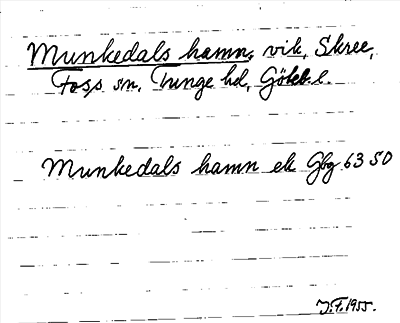 Munkedals hamn, vik, Skree,
Foss sn, Tunge hd, Göteb. l.
Munkedals hamn ek Gbg 63 SO
J.F. 1955.